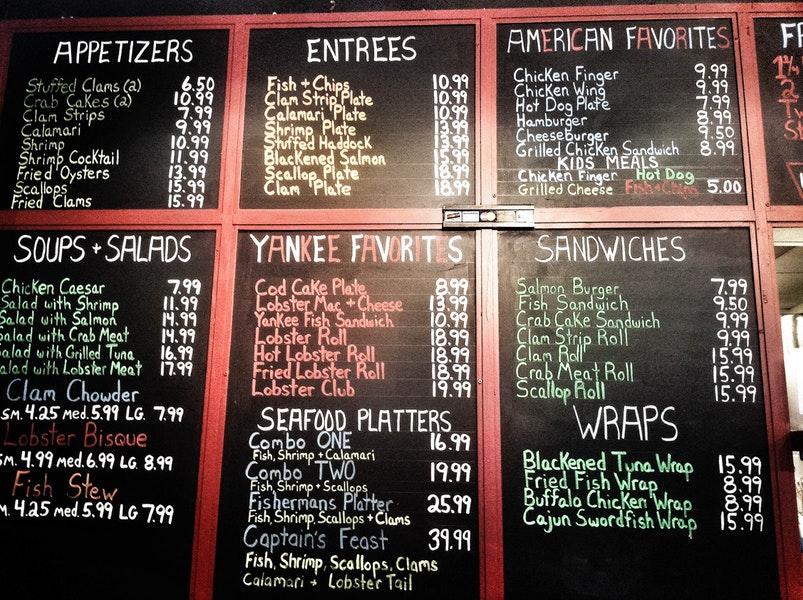 APPETIZERS
Stuffed Clams (2) 6.50
Crab Cakes (2) 10.99
Clam Strips 7.99
Calamari 9.99
Shrimp 10.99
Shrimp Cocktail 11.99
Fried Oysters 13.99
Scallops 15.99
Fried Clams 15.99
ENTREES
Fish + Chips 10.99
Clam Strip Plate 10.99
Calamari Plate 10.99
Shrimp Plate 13.99
Stuffed Haddock 13.99
Blackened Salmon 15.99
Scallop Plate 18.99
Clam Plate 18.99
AMERICAN FAVORITES
Chicken Finger 9.99
Chicken Wing 9.99
Hot Dog Plate 7.99
Hamburger 8.99
CheeseBurger 9.50
Grilled Chicken Sandwich 8.99
KIDS MEALS
Chicken Finger Hot Dog
Grilled Cheese Fish + Chips 5.00
SOUPS + SALADS
Chicken Caesar 7.99
Salad with Shrimp 11.99
Salad with Salmon 14.99
Salad with Crab Meat 14.99
Salad with Grilled Tuna 16.99
Salad with Lobster Meat 17.99
Clam Chowder
SM. 4.25 Med. 5.99 LG. 7.99
Lobster Bisque
SM. 4.99 Med. 6.99 LG. 8.99
Fish Stew
M. 4.25 Med. 5.99 LG 7.99
YANKEE FAVORITES
Cod Cake Plate 8.99
Lobster Mac + Cheese 13.99
YanKee Fish Sandwich 10.99
Lobster Roll 18.99
Hot Lobster Roll 18.99
Fried Lobster Roll 18.99
Lobster Club 19.99
SEAFOOD PLATTERS
Combo ONE 16.99
Fish, Shrimp + Calamari
Combo TWO 19.99
Fish, Shrimp + Scallops
Fishermans Platter 25.99
Fish, Shrimp, Scallops + Clams
Captain's Feast 39.99
Fish, Shrimp, Scallops, Clams
Calamari + Lobster Tail
SANDWICHES
Salmon Burger 7.99
Fish Sandwich 9.50
Crab Cake Sandwich 9.99
Clam Strip Roll 9.99
Clam Roll 15.99
Crab Meat Roll 15.99
Scallop Roll 15.99
WRAPS
Blackened Tuna Wrap 15.99
Fried Fish Wrap 8.99
Buffalo Chicken Wrap 8.99
Cajun Swordfish Wrap 15.99